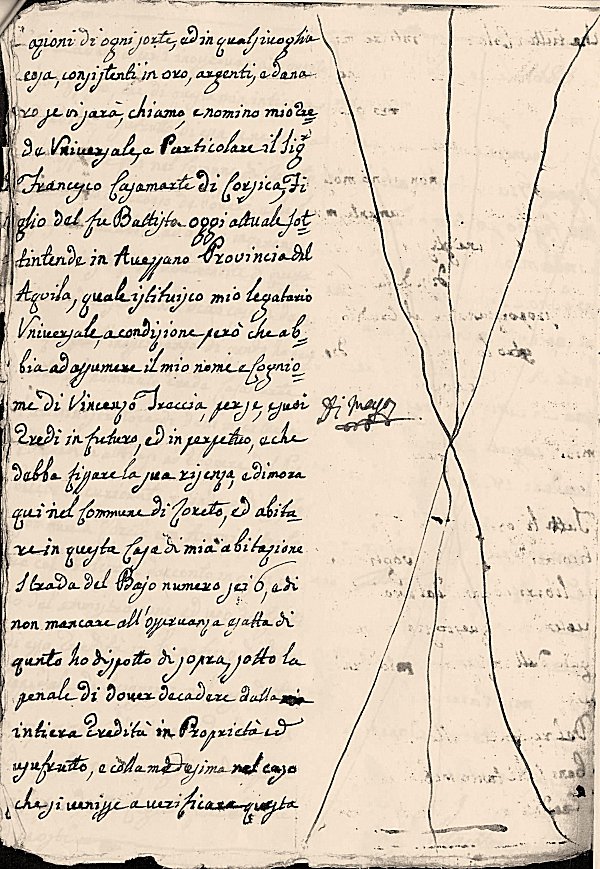 agioni di ogni sorte, ed in qualsivoglia
cosa, consistenti in oro, argenti, e dana
ro se vi sarà, chiamo, e nomino mio Ere=
de Universale, e Particolare il Sigr
Francesco Casamarte di Corsica, Fi
glio del fu Battista oggi attuale Sot=
tintende in Avezzano Provincia del
Aquila, quale istituisco mio legatario
Universale, a condizione però che ab=
bia ad assumere il mio nome e Cognio=
me di Vincenzo Treccia, per se, e suoi
Eredi in futuro, ed in perpetuo, e che
debba fissare la sua risenza, e dimora
qui nel Commune di Loreto, ed abita=
re in questa Casa di mia abitazione
Strada del Bajo numero sei 6, e di
non mancare all'osservanza esatta di
qunto ho disposto di sopra, sotto la
penale di dover decadere dalla mia
intiera Eredità in Proprietà ed
usufrutto, e colla medesima nel caso
che si venisse a verificare questa